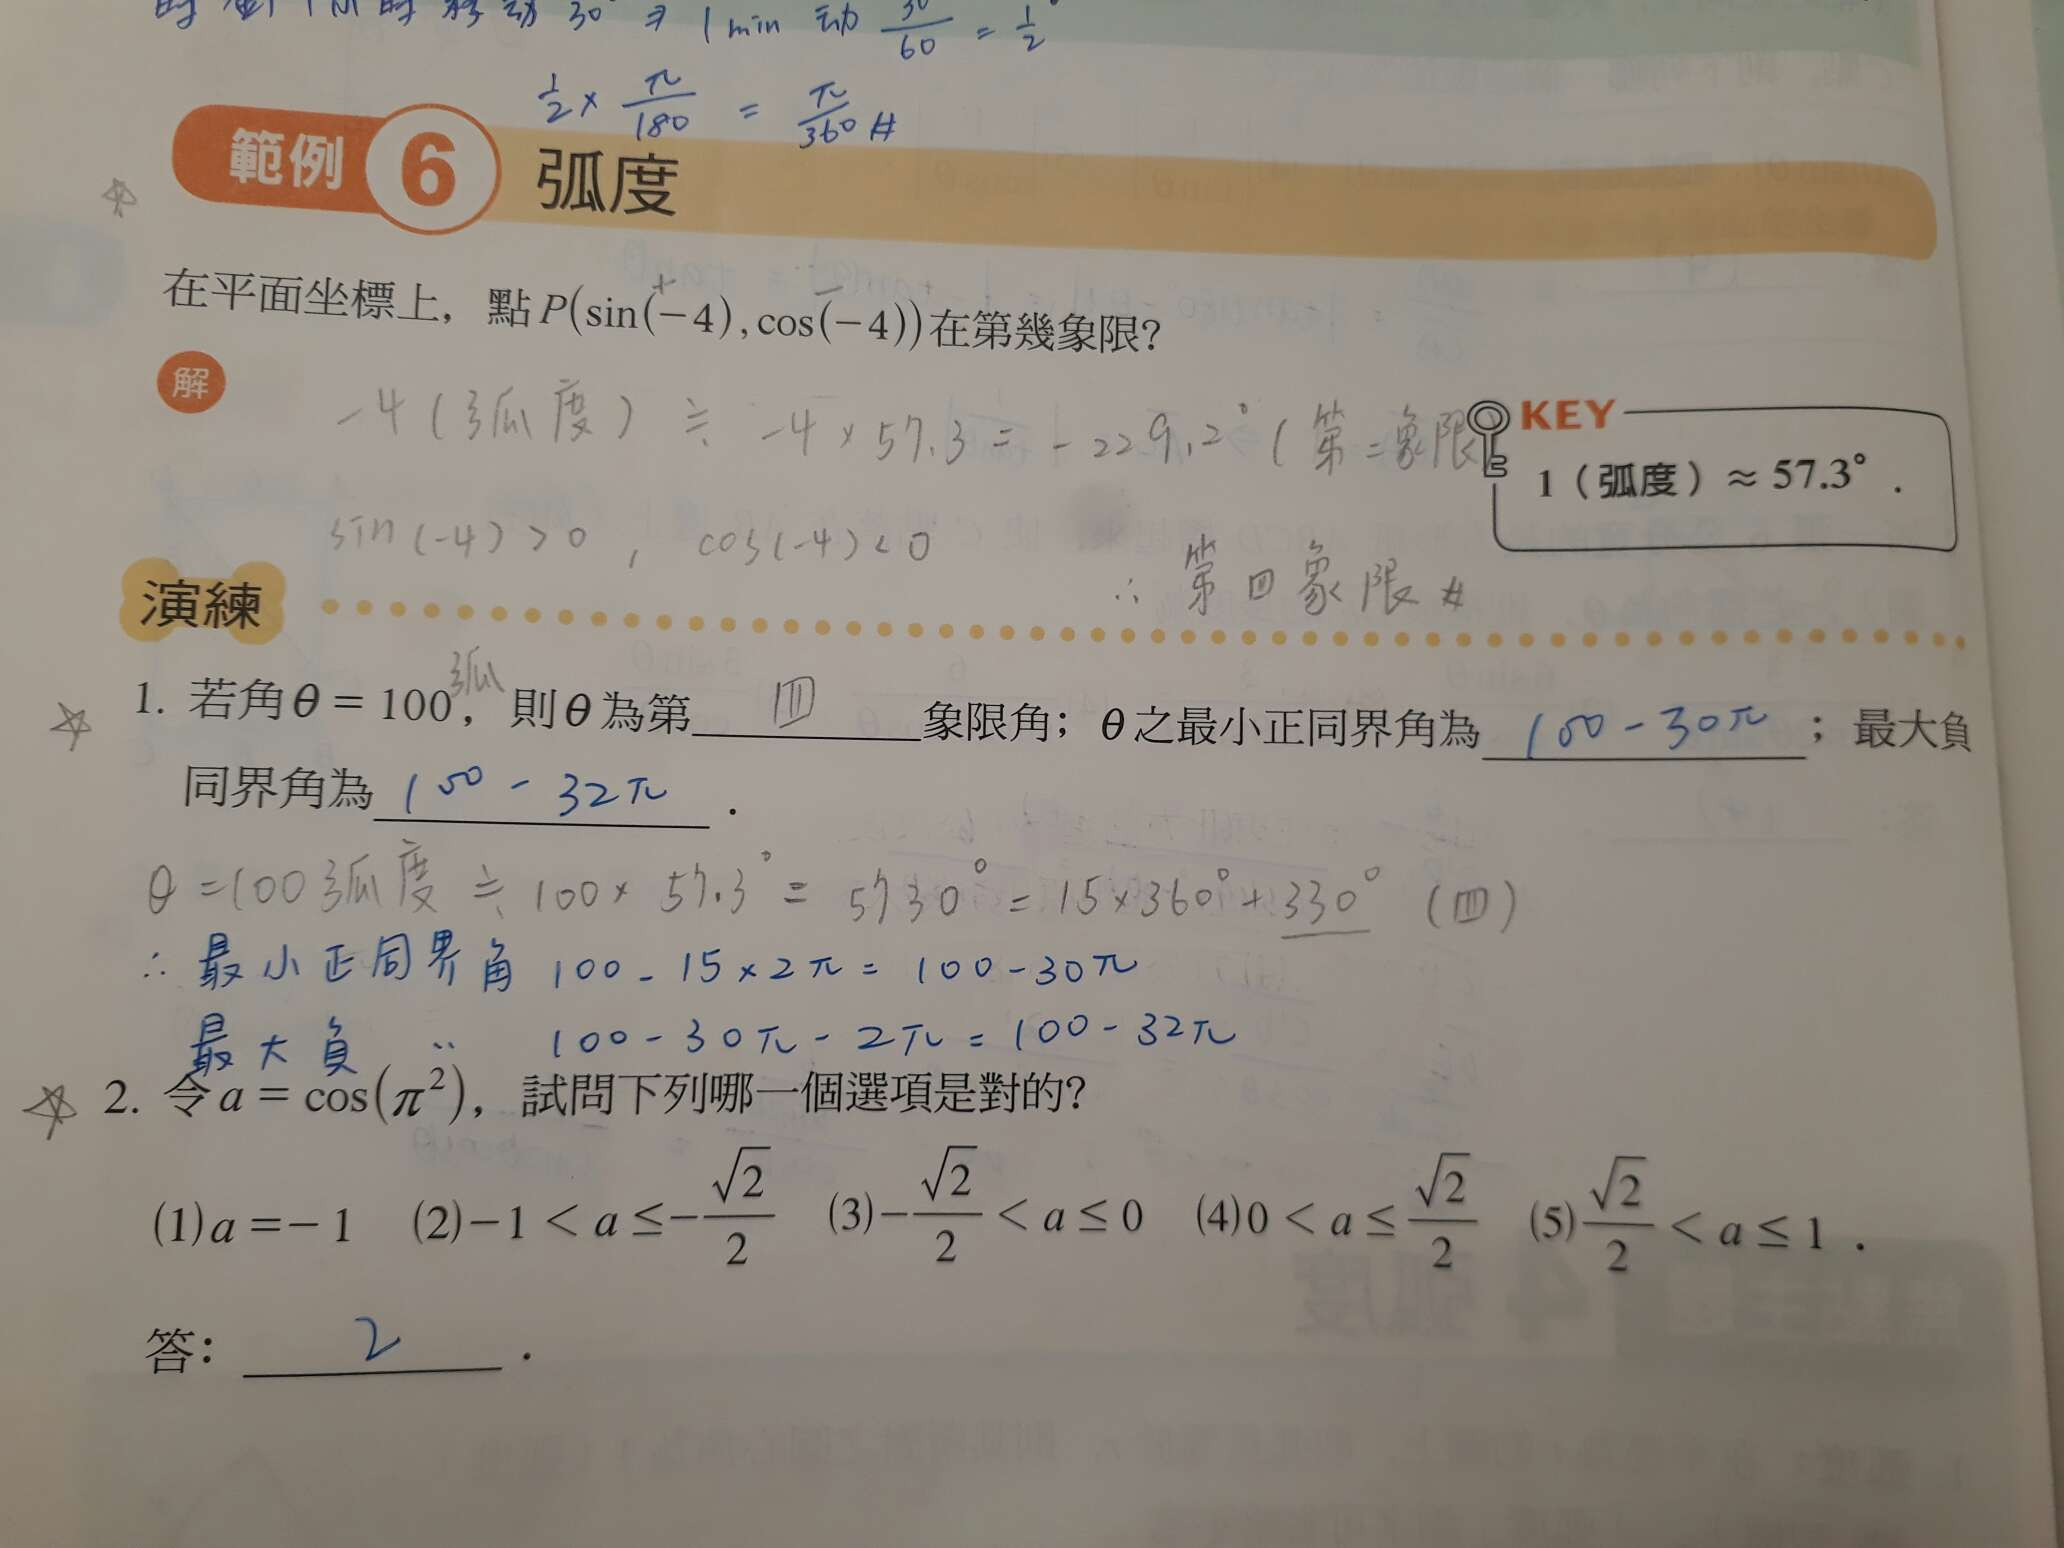 時針1小時移動30° ⇒ 1min 动 30/60 = 1/2°
1/2 × π/180 = π/360 #
範例 6 弧度
在平面坐標上，點P(sin(−4), cos(−4))在第幾象限？
+ −
解
−4(弧度) ≒ −4×57.3 = −229.2° (第二象限)
KEY
1（弧度）≈ 57.3°．
sin(−4)>0 , cos(−4)<0
∴ 第四象限 #
演練
弧
1. 若角θ = 100，則θ為第 四 象限角；θ之最小正同界角為 100−30π ；最大負
同界角為 100−32π ．
θ=100弧度 ≒ 100×57.3° = 5730° = 15×360°+330° (四)
∴ 最小正同界角 100−15×2π = 100−30π
最大負 〃 100−30π−2π = 100−32π
2. 令a = cos(π²)，試問下列哪一個選項是對的？
(1)a = −1 (2)−1 < a ≤ −√2/2 (3)−√2/2 < a ≤ 0 (4)0 < a ≤ √2/2 (5)√2/2 < a ≤ 1．
答： 2 ．